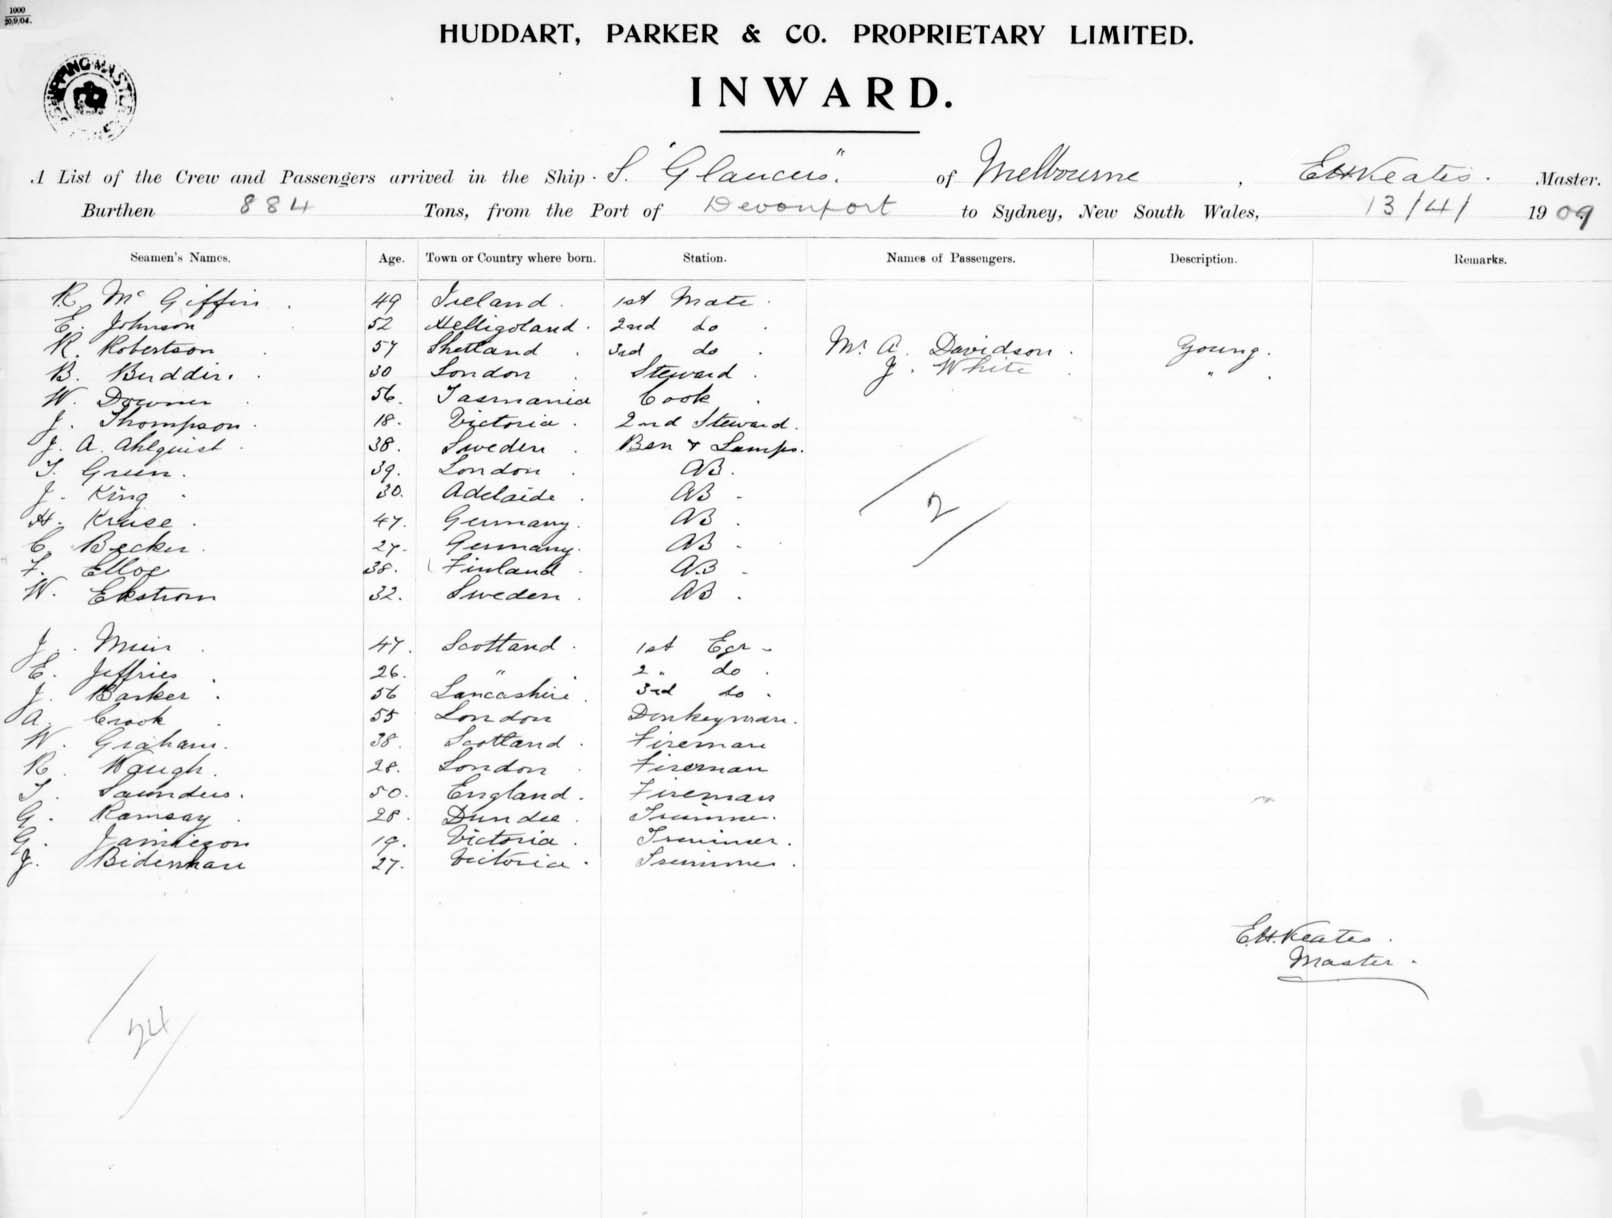 1000
20/9/04.
HUDDART, PARKER & CO. PROPRIETARY LIMITED.
INWARD.
A List of the Crew and Passengers arrived in the Ship S. "Glaucus" of Melbourne, E H Keates. Master.
Burthen 884 Tons, from the Port of Devonport to Sydney, New South Wales, 13/4/ 1909
Seamen's Names. Age. Town or Country where born. Station. Names of Passengers. Description. Remarks.
R. Mc Giffin. 49 Ireland. 1st Mate.
E. Johnson 52 Helligoland. 2nd do.
R. Robertson. 57 Shetland. 3rd do. Mr A. Davidson. Young.
B. 30 London. Steward. J. White. " .
W. Downer. 56. Tasmania Cook.
J. Thompson. 18. Victoria. 2nd Steward.
J. A. Ahlquist. 38. Sweden. Bsn & Lamps.
T. Green. 39. London. AB.
J. King. 30. Adelaide. AB.
H. Kruse. 47. Germany. AB.
C. Becker. 27. Germany. AB.
F. 38. Finland. AB.
W. Ekstrom 32. Sweden. AB.
2
J. Muir. 47. Scotland. 1st Egr.
E. Jeffries. 26. " 2 " do.
J. Barker. 56 Lancashire. 3rd do.
A. Crook. 55 London Donkeyman.
W. Graham. 38. Scotland. Fireman
R. Waugh. 28. London. Fireman
T. Saunders. 50. England. Fireman
G. Ramsay. 28. Dundee. Trimmer.
G. Jamieson 19. Victoria. Trimmer.
J. Bidenhan 27. Victoria. Trimmer.
E.H. Keates.
Master.
24